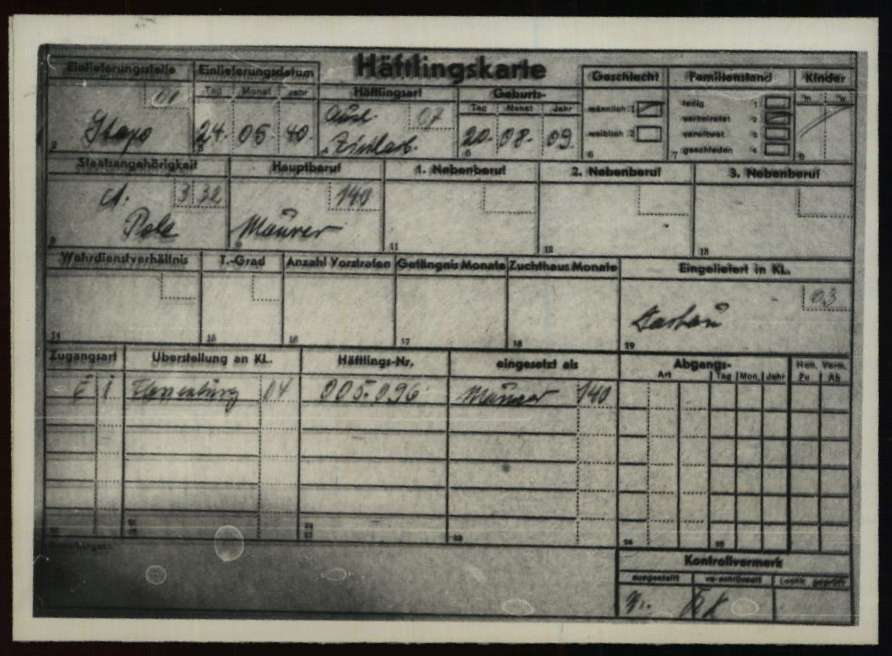 Häftlingskarte
Einlieferungsstelle Einlieferungsdatum Häftlingsart Geburts- Geschlecht Familienstand Kinder
Tag Monat Jahr Tag Monat Jahr m. w.
01 07
Stapo 24. 05. 40. Ausl. Zivilarb. 20. 08. 09.
männlich 1
weiblich 2
ledig 1
verheiratet 2
verwitwet 3
geschieden 4
2 5 6 7 8
Staatsangehörigkeit Hauptberuf 1. Nebenberuf 2. Nebenberuf 3. Nebenberuf
3 32 140
Pole Maurer
9 10 11 12 13
Wehrdienstverhältnis T.-Grad Anzahl Vorstrafen Gefängnis Monate Zuchthaus Monate Eingeliefert in KL.
03
Dachau
14 15 16 17 18 19
Zugangsart Überstellung an KL. Häftlings-Nr. eingesetzt als Abgangs- Haft. Verm.
Art Tag Mon. Jahr Zu Ab
E 1 Flossenbürg 04 005.096 Maurer 140
Kontrollvermerk
ausgestellt verschlüsselt Lochk. geprüft